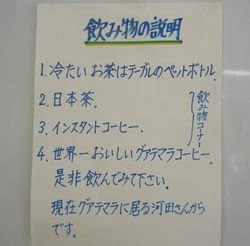 飲み物の説明
1. 冷たいお茶はテーブルのペットボトル.
2. 日本茶.
3. インスタントコーヒー.
飲み物コーナー
4. 世界一おいしいグアテマラコーヒー.
是非飲んでみて下さい.
現在グアテマラに居る河田さんから
です.